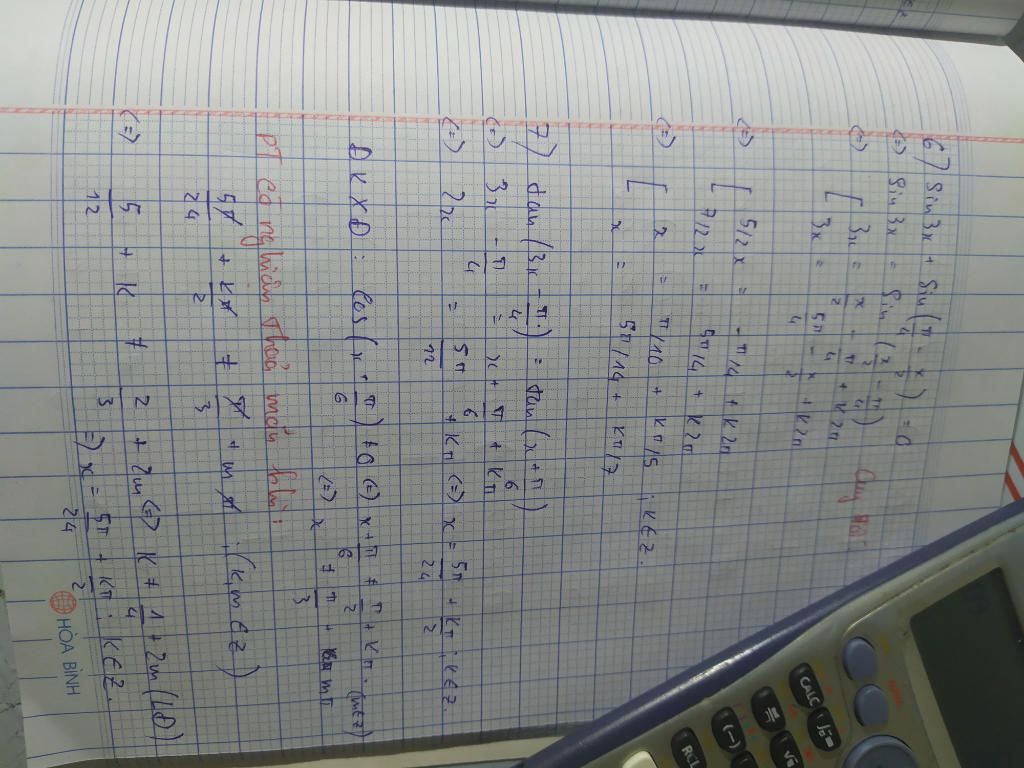 6) sin3x + sin(π/4 - x/2) = 0
(=) sin3x = sin(x/2 - π/4)
(=) [ 3x = x/2 - π/4 + k2π
3x = 5π/4 - x/2 + k2π
(=) [ 5/2x = -π/4 + k2π
7/2x = 5π/4 + k2π
(=) [ x = π/10 + kπ/5 ; k∈Z.
x = 5π/14 + kπ/7
7) tan(3x - π/4) = tan(x + π/6)
(=) 3x - π/4 = x + π/6 + kπ
(=) 2x = 5π/12 + kπ (=) x = 5π/24 + kπ/2 ; k∈Z
ĐKXĐ: cos(x + π/6) ≠ 0 (=) x + π/6 ≠ π/2 + kπ. (m∈Z)
(=) x ≠ π/3 + mπ
PT có nghiệm thoả mãn khi:
5π/24 + kπ/2 ≠ π/3 + mπ ; (k,m ∈ Z)
(=) 5/12 + k ≠ 2/3 + 2m (=) k ≠ 1/4 + 2m (LĐ)
=) x = 5π/24 + kπ/2 ; k∈Z.
HÒA BÌNH
CALC
(-)
RCL